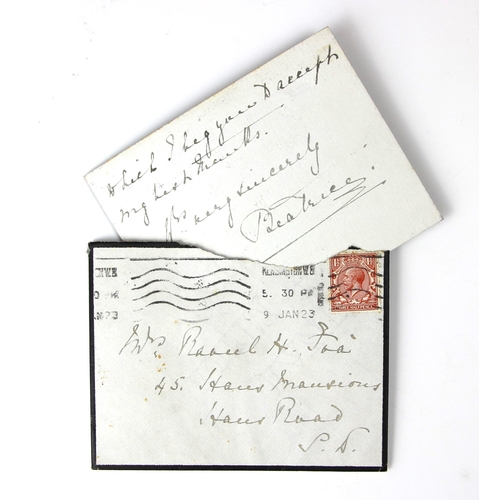 which I beg you to accept
my best thanks.
Yrs very sincerely
Beatrice
KENSINGTON W.8
5. 30 PM
9 JAN 23
JAN 23
Mrs Raoul H. Foà
45. Hans Mansions
Hans Road
S. W.